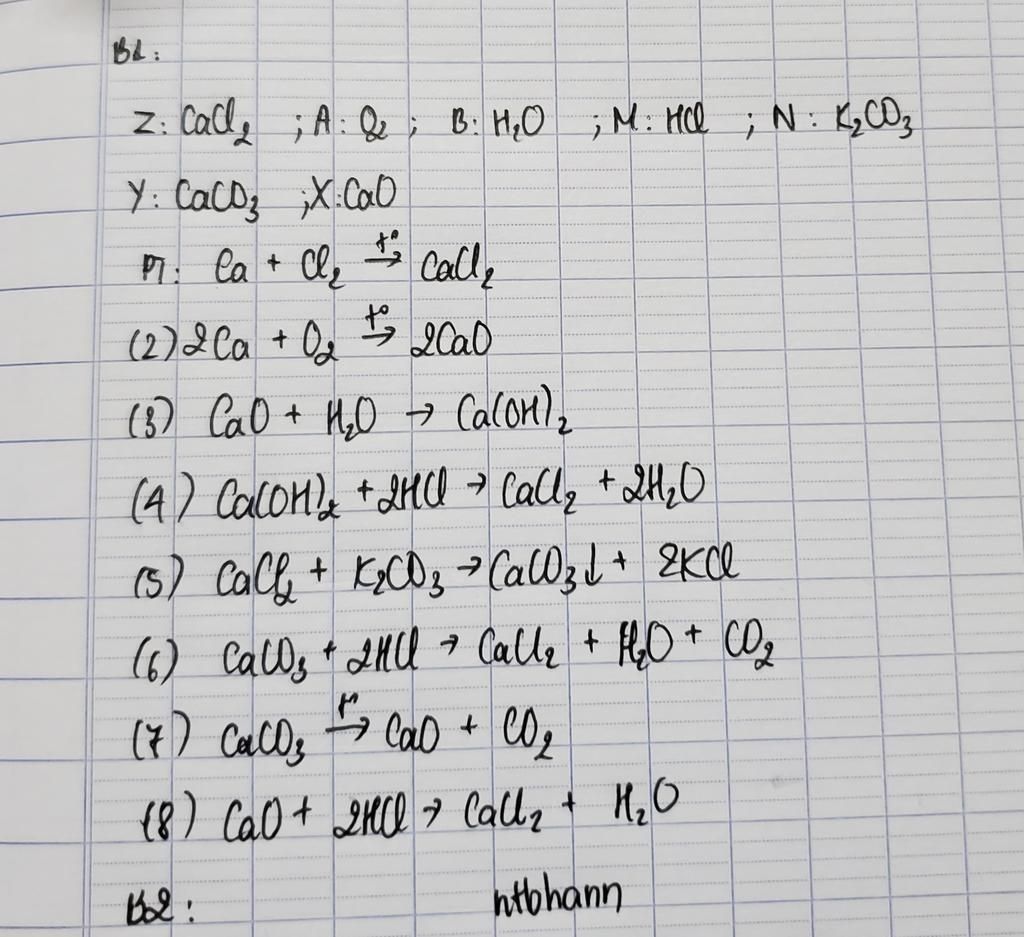 B1:
Z: CaCl₂ ; A: O₂ ; B: H₂O ; M: HCl ; N: K₂CO₃
Y: CaCO₃ ; X: CaO
Pt: Ca + Cl₂ →(t°) CaCl₂
(2) 2Ca + O₂ →(t°) 2CaO
(3) CaO + H₂O → Ca(OH)₂
(4) Ca(OH)₂ + 2HCl → CaCl₂ + 2H₂O
(5) CaCl₂ + K₂CO₃ → CaCO₃↓ + 2KCl
(6) CaCO₃ + 2HCl → CaCl₂ + H₂O + CO₂
(7) CaCO₃ →(t°) CaO + CO₂
(8) CaO + 2HCl → CaCl₂ + H₂O
B2: ntbhann